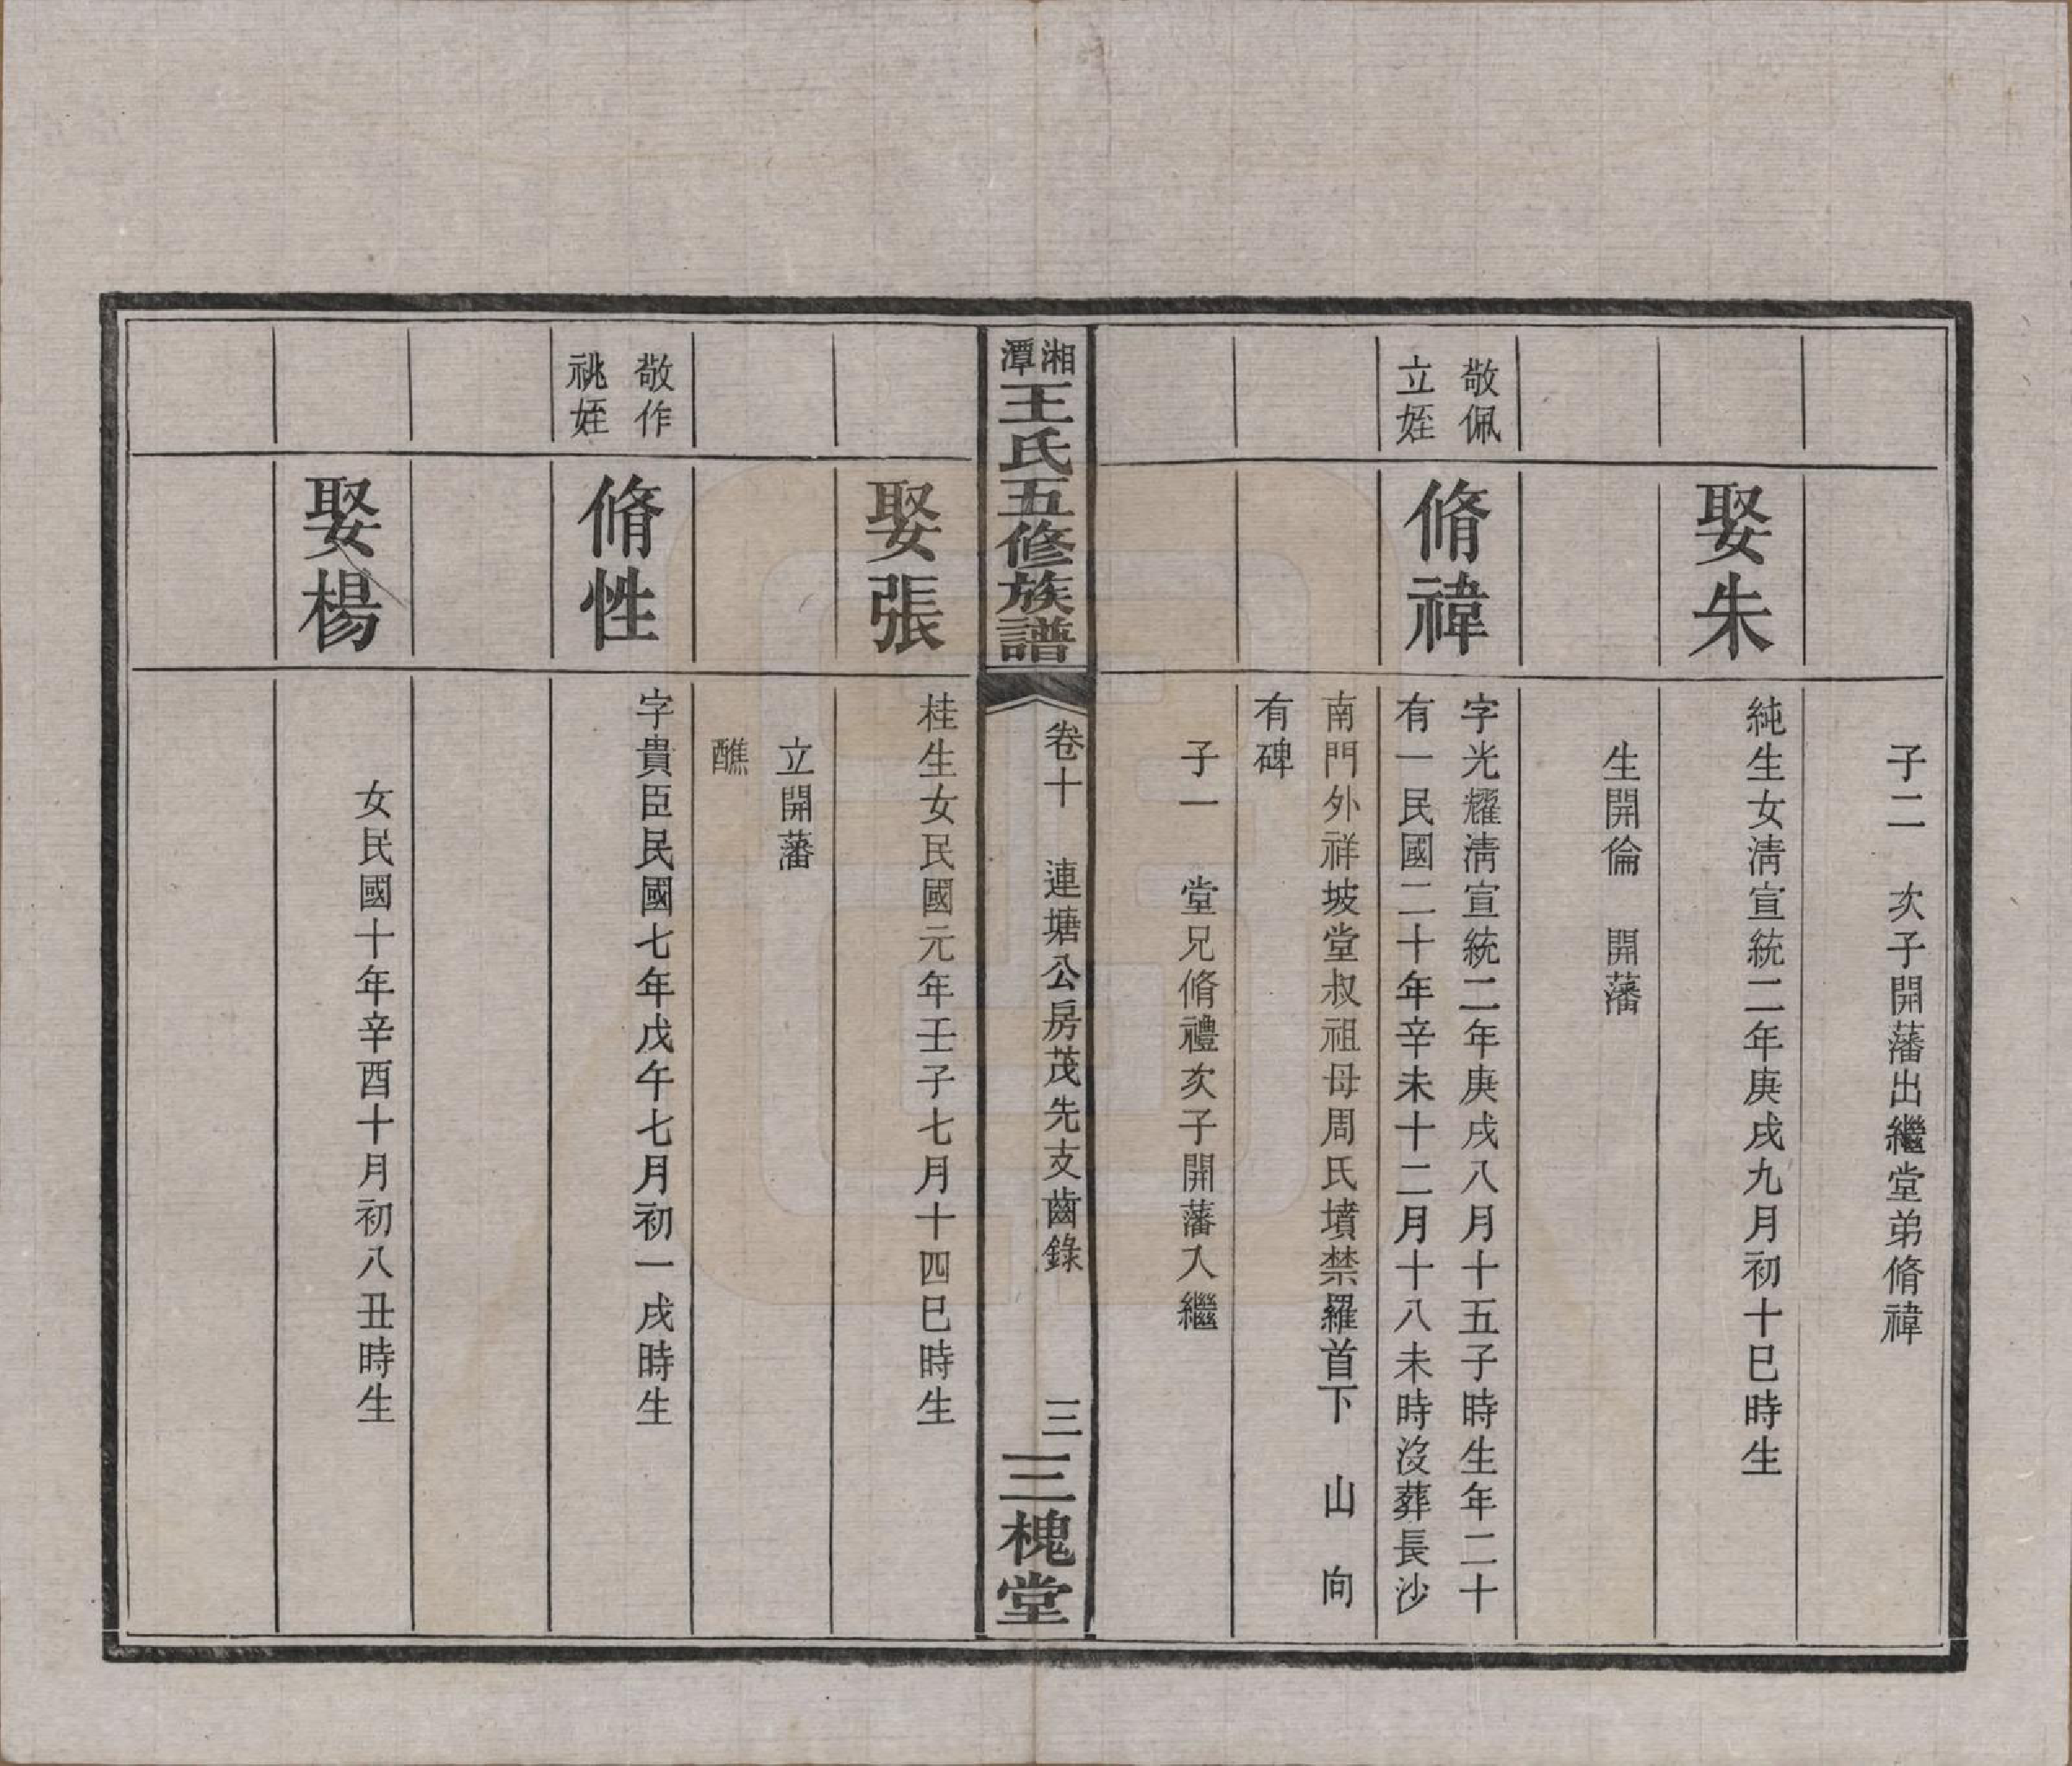 子二　次子開藩出繼堂弟脩禕
娶朱
純生女淸宣統二年庚戌九月初十巳時生
生開倫　開藩
敬佩
立姪
脩禕
字光耀淸宣統二年庚戌八月十五子時生年二十
有一民國二十年辛未十二月十八未時沒葬長沙
南門外祥坡堂叔祖母周氏墳禁羅首下　山　向
有碑
子一　堂兄脩禮次子開藩入繼
湘潭王氏五修族譜
卷十　連塘公房茂先支齒錄　三
三槐堂
娶張
桂生女民國元年壬子七月十四巳時生
立開藩
醮
敬作
祧姪
脩性
字貴臣民國七年戊午七月初一戌時生
娶楊
女民國十年辛酉十月初八丑時生